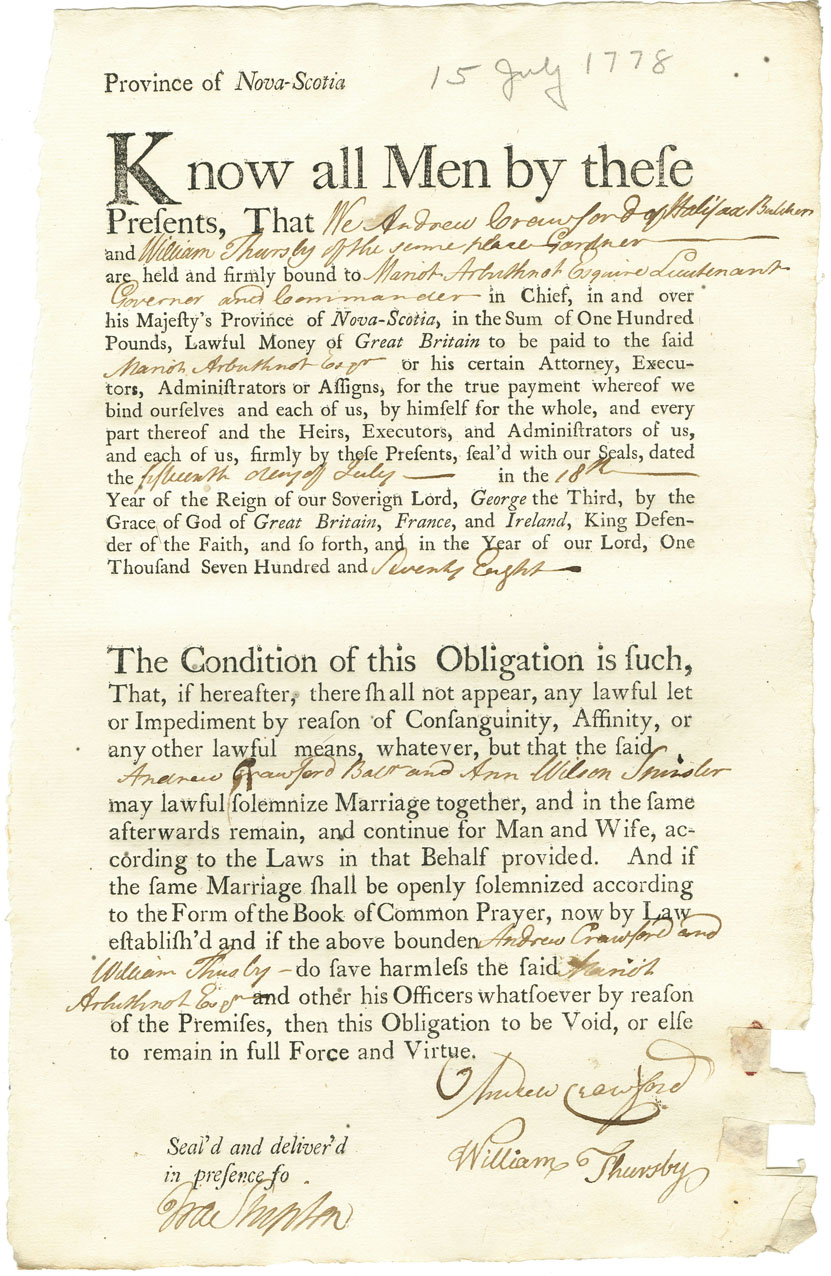 Province of Nova-Scotia
15 July 1778
Know all Men by theſe
Preſents, That We Andrew Crawford of Halifax Butcher
and William Thursby of the same place Gardner
are held and firmly bound to Mariot Arbuthnot Esquire Lieutenant
Governor and Commander in Chief, in and over
his Majeſty's Province of Nova-Scotia, in the Sum of One Hundred
Pounds, Lawful Money of Great Britain to be paid to the ſaid
Mariot Arbuthnot Esqr or his certain Attorney, Execu-
tors, Adminiſtrators or Aſſigns, for the true payment whereof we
bind ourſelves and each of us, by himſelf for the whole, and every
part thereof and the Heirs, Executors, and Adminiſtrators of us,
and each of us, firmly by theſe Preſents, ſeal'd with our Seals, dated
the fifteenth day of July in the 18th
Year of the Reign of our Soverign Lord, George the Third, by the
Grace of God of Great Britain, France, and Ireland, King Defen-
der of the Faith, and ſo forth, and in the Year of our Lord, One
Thouſand Seven Hundred and Seventy Eight
The Condition of this Obligation is ſuch,
That, if hereafter, there ſhall not appear, any lawful let
or Impediment by reaſon of Conſanguinity, Affinity, or
any other lawful means, whatever, but that the ſaid
Andrew Crawford Batr and Ann Wilson Spinster
may lawful ſolemnize Marriage together, and in the ſame
afterwards remain, and continue for Man and Wife, ac-
cording to the Laws in that Behalf provided. And if
the ſame Marriage ſhall be openly ſolemnized according
to the Form of the Book of Common Prayer, now by Law
eſtabliſh'd and if the above bounden Andrew Crawford and
William Thusby - do ſave harmleſs the ſaid Mariot
Arbuthnot Esqr and other his Officers whatſoever by reaſon
of the Premiſes, then this Obligation to be Void, or elſe
to remain in full Force and Virtue.
Andrew Crawford
Seal'd and deliver'd
William Thursby
in preſence ſo